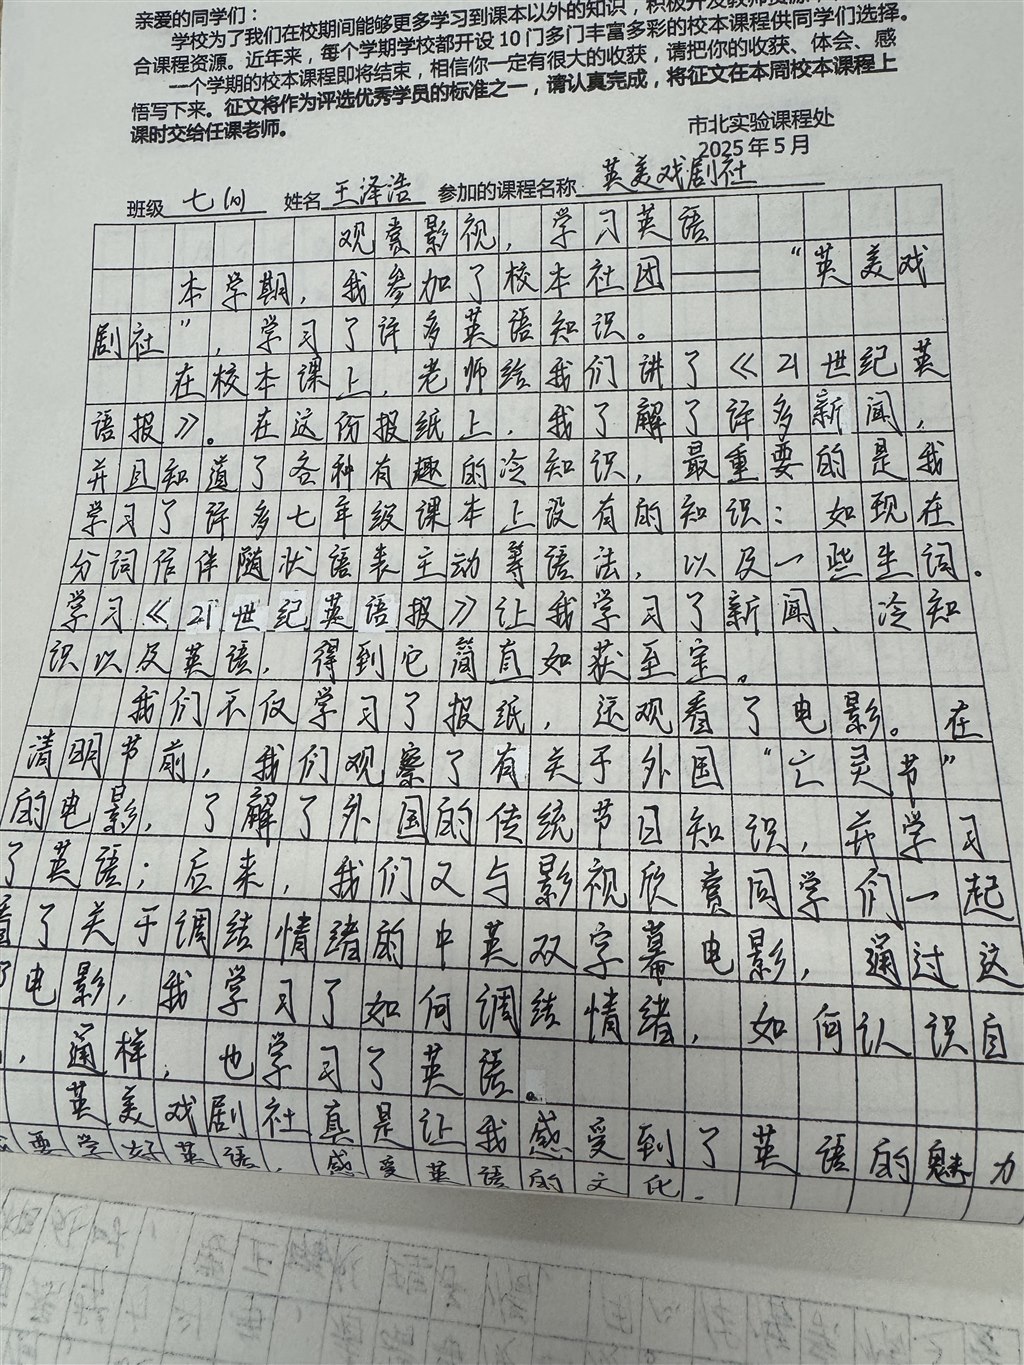 亲爱的同学们：
学校为了我们在校期间能够更多学习到课本以外的知识，积极开发教师资源
合课程资源。近年来，每个学期学校都开设10门多门丰富多彩的校本课程供同学们选择。
一个学期的校本课程即将结束，相信你一定有很大的收获，请把你的收获、体会、感
悟写下来。征文将作为评选优秀学员的标准之一，请认真完成，将征文在本周校本课程上
课时交给任课老师。
市北实验课程处
2025年5月
班级 七(1) 姓名 王泽浩 参加的课程名称 英美戏剧社
观赏影视，学习英语
本学期，我参加了校本社团——“英美戏
剧社”，学习了许多英语知识。
在校本课上，老师给我们讲了《21世纪英
语报》。在这份报纸上，我了解了许多新闻，
并且知道了各种有趣的冷知识，最重要的是我
学习了许多七年级课本上没有的知识：如现在
分词作伴随状语表主动等语法，以及一些生词。
学习《21世纪英语报》让我学习了新闻、冷知
识以及英语，得到它简直如获至宝。
我们不仅学习了报纸，还观看了电影。在
清明节前，我们观察了有关于外国“亡灵节”
的电影，了解了外国的传统节日知识，并学习
了英语；后来，我们又与影视欣赏同学们一起
看了关于调结情绪的中英双字幕电影，通过这
电影，我学习了如何调结情绪，如何认识自
，同样，也学习了英语。
英美戏剧社真是让我感受到了英语的魅力
要学好英语，感受英语的文化.